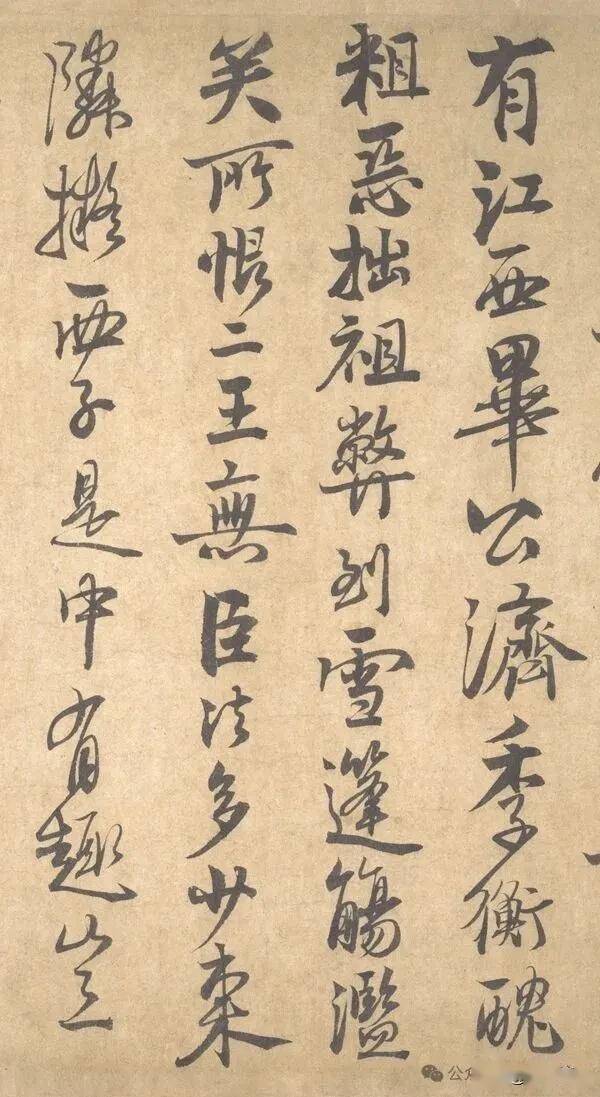 有江西畢公濟季衡醜
粗惡拙祖弊到雪篷觴濫
矣所恨二王無臣法多少東
隣擬西子是中有趣豈
公众